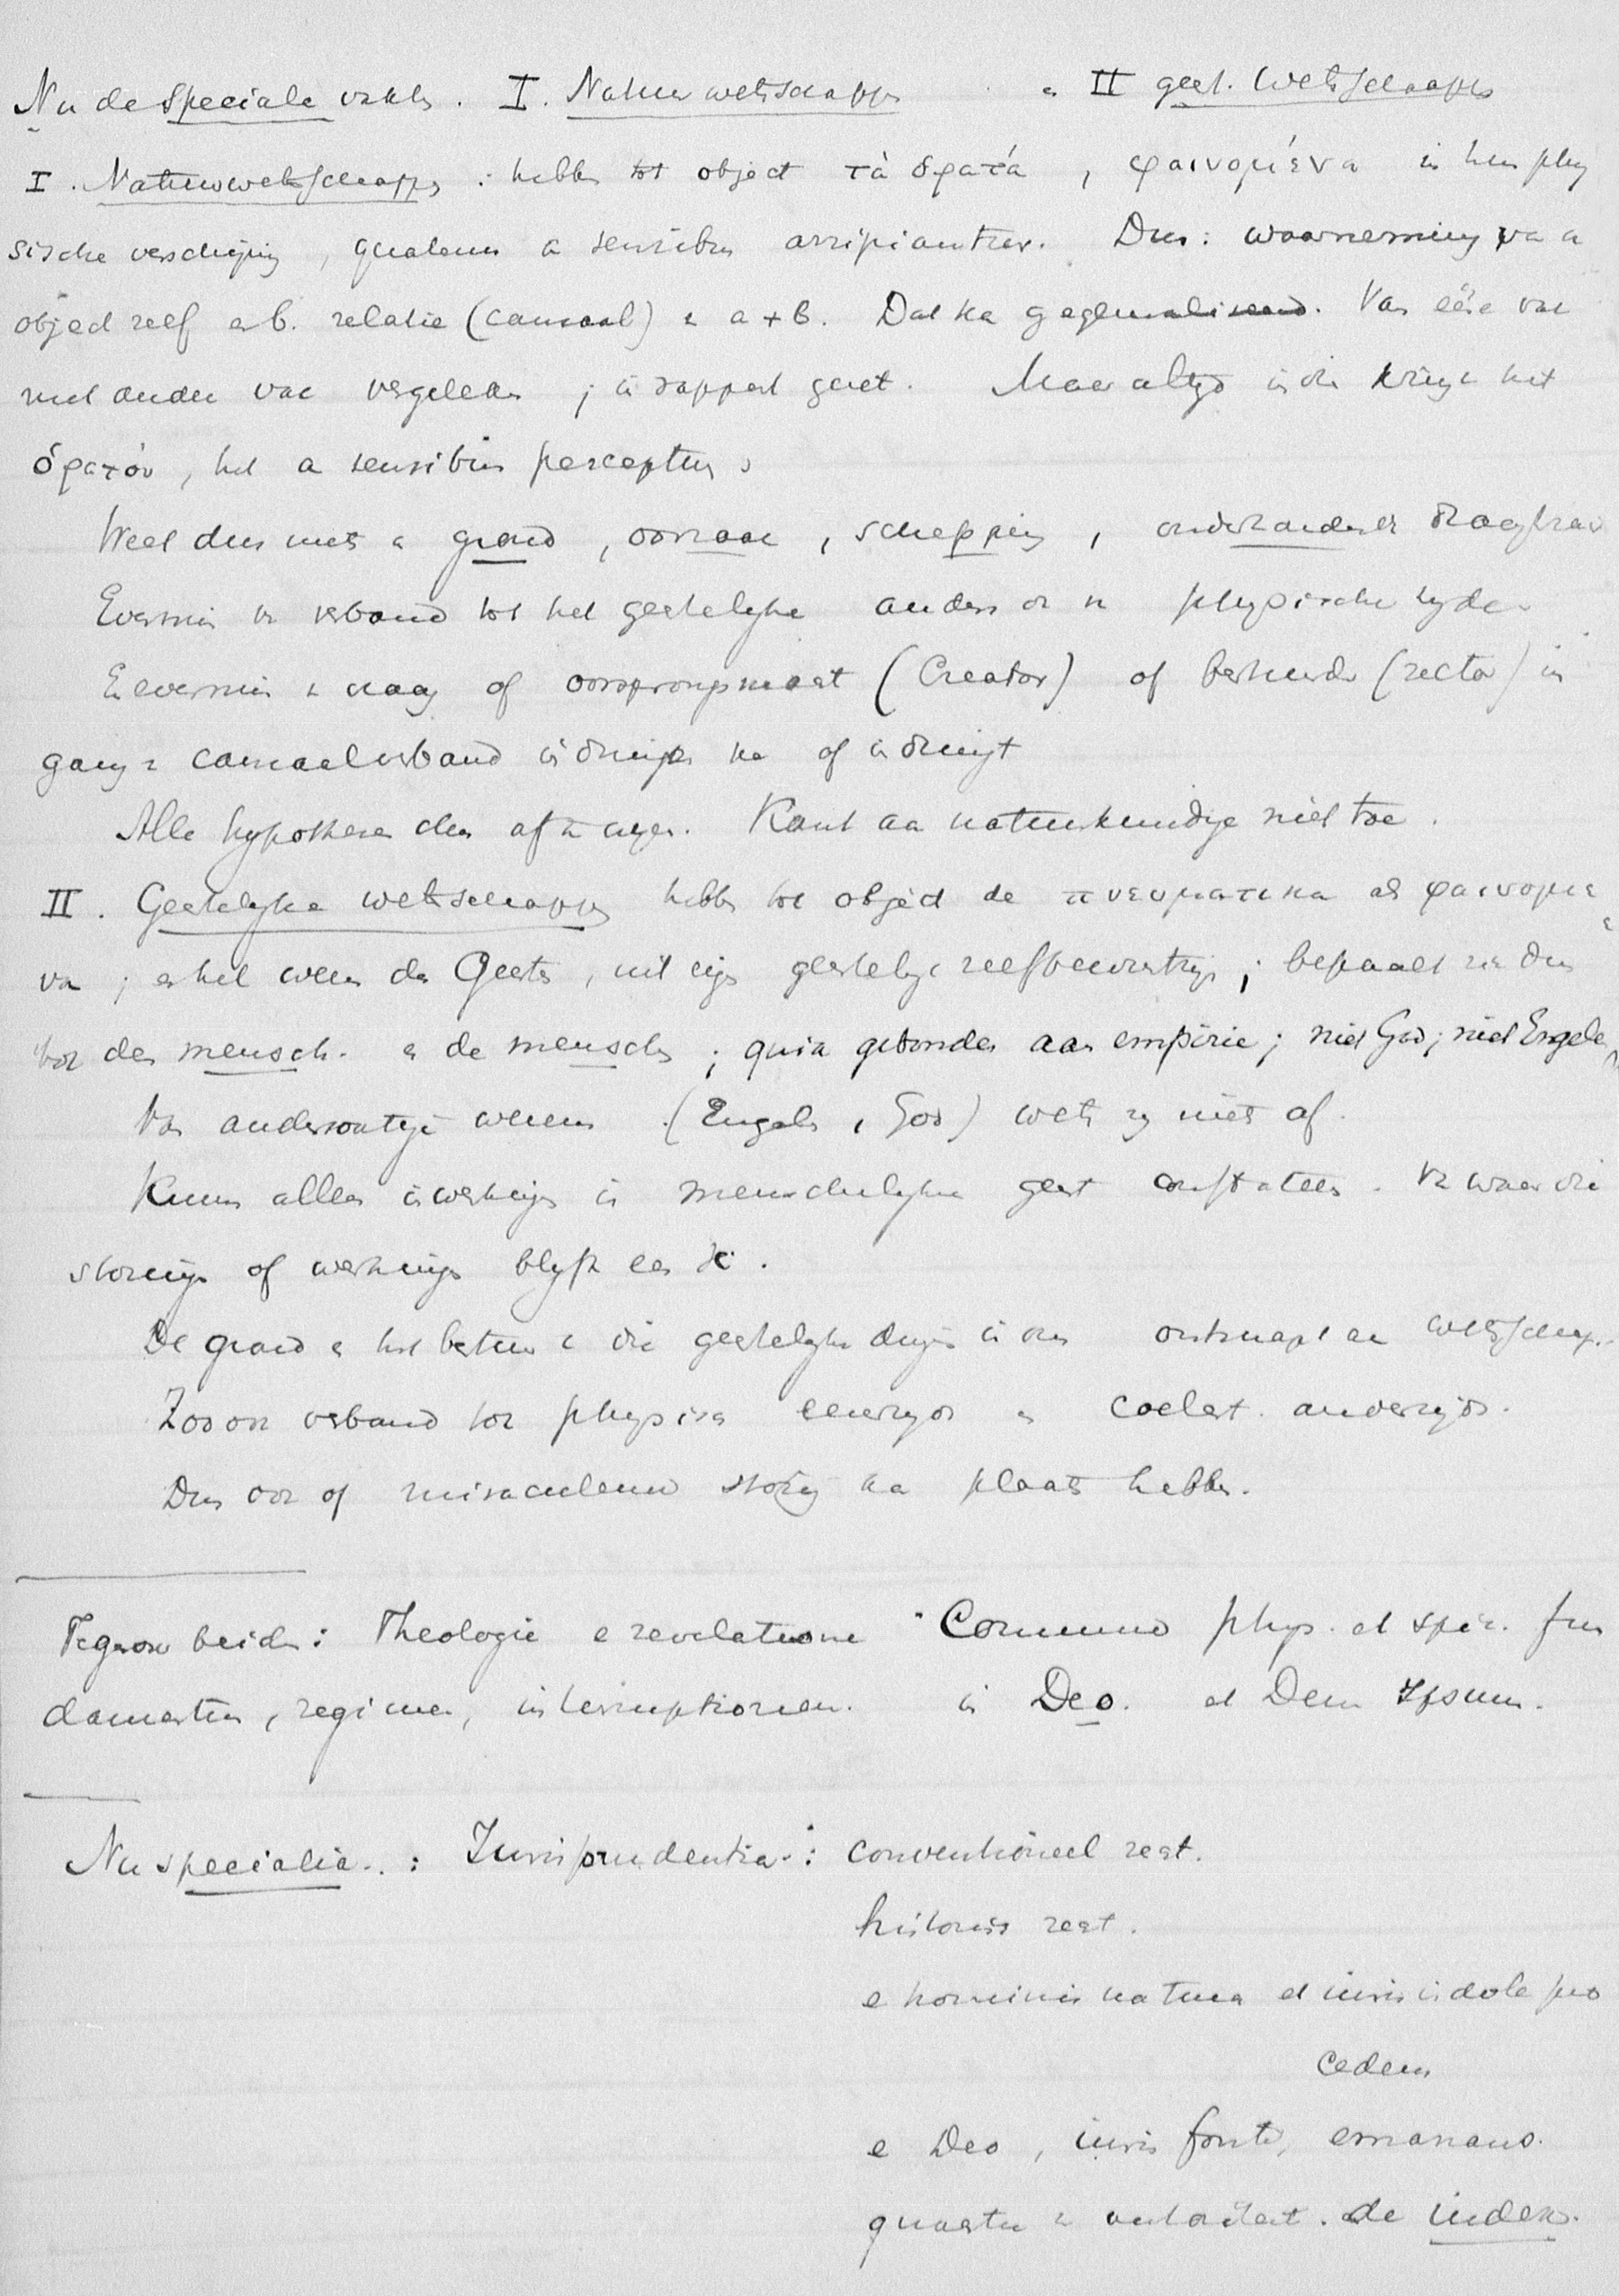 Nu de speciale vakk. I. Natuurwetschapp en II geest. Wetschapp
I. Natuurwetschapp : hebb tot object τὰ ὁρατά, φαινομένα in hun phy
sische verschijning, quatenus a sensibus arripiantur. Dus: waarneming van a
object zelf en b. relatie (causaal) a + b. Dat ka gegeneraliseerd. Van ééne vac
met ander vac vergeleken ; in rapport gezet. Maar altyd in die kring het
ὁρατόν, het a sensibus perceptum
Weet dus niets grond, oorzaak, schepping, onderhoudende draagkrac
Evenmin verband tot het geestelyke anders physische zyde
Evenmin vraag of oorsprongsmact (Creator) of bestuurder (rector) in
gang causaalverband indringen ka of indringt
Alle hypothese dus afwijzen. Komt aan natuurkundige niet toe.
II. Geestelyke wetschapp hebb tot object de πνευματικα als φαινομε
να ; en het wezen des Geestes, uit eigen geestelyk zelfbewustzijn ; bepaalt zich dus
tot den mensch. en de mensch ; quia gebonden aan empirie; niet God; niet Engelen
Van andersoortige wezens (Engelen, God) weet zy niets af.
Kunnen alleen inwerking in menschelyke geest constateeren. Van waar die
storing of werking blyft een X.
De grond en het bestuur die geestelyke dingen in ons ontsnapt aan wetschap.
Zoo ook verband tot physica eenerzyds en coelest. anderzyds.
Dus ook of miraculeuse storing ka plaats hebben.

Tegenover beide: Theologie e revelatione Commune phys. et spir. fun
damentum, regimen, interruptionem. in Deo. et Deum Ipsum.

Nu specialia. : Jurisprudentia. : conventioneel recht.
historisch recht.
e hominis natura et iuris indole pro
cedens
e Deo, iuris fonte, emanans.
quaestie autoriteit. de iudex.